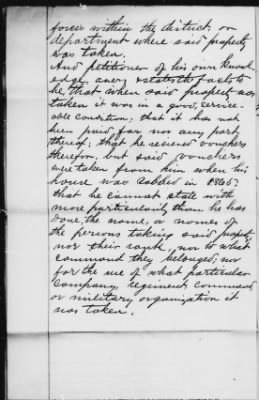 forces within the district or
department where said property
was taken.
And petitioner of his own knowl-
edge, avers states the facts to
be that when said property was
taken it was in a good, service-
able condition; that it has not
been paid for nor any part
thereof; that he received vouchers
therefor, but said vouchers
were taken from him when his
house was robbed in 1865;
that he cannot state with
more particularity than he has
done, the name, or names of
the persons taking said property
nor their rank, nor to what
command they belonged; nor
for the use of what particular
Company, regiment command
or military organization it
was taken.